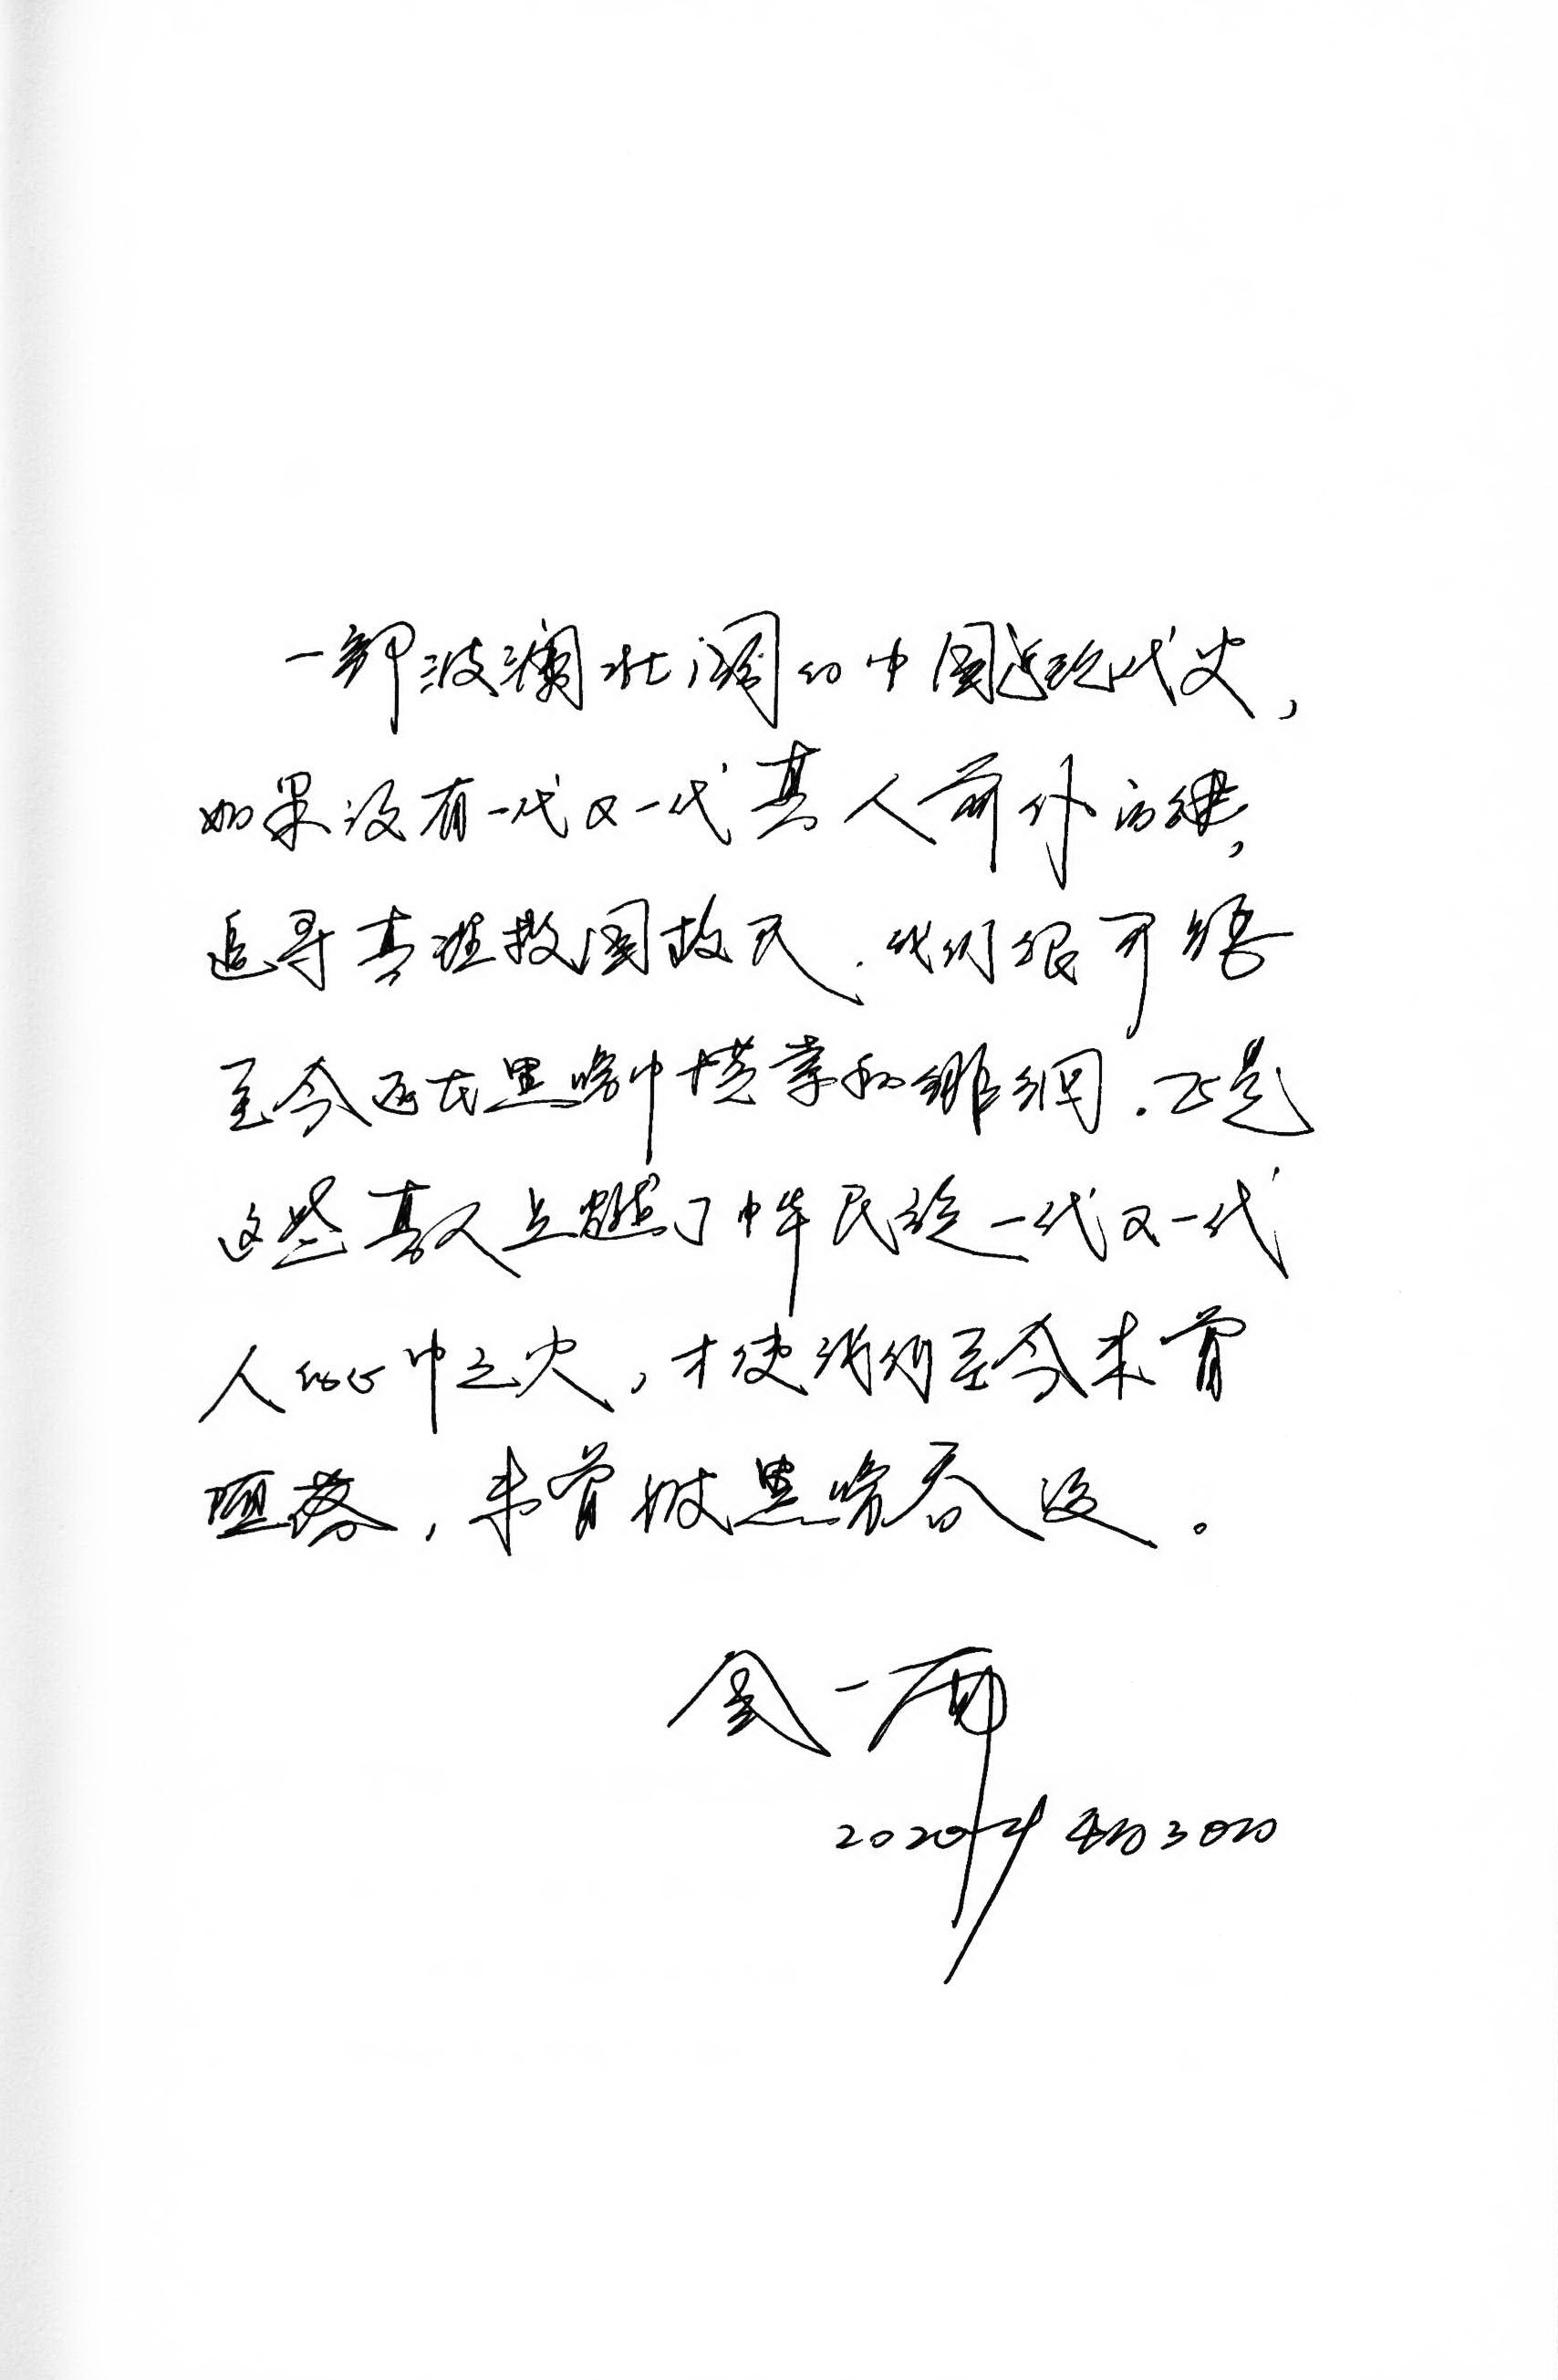 一部波澜壮阔的中国近现代史，
如果没有一代又一代真人前仆后继，
追寻真理救国救民，我们很可能
至今还在黑暗中摸索和徘徊．正是
这些真人点燃了中华民族一代又一代
人的心中之火，才使我们至今未曾
堕落，未曾被黑暗吞没。
金一南
2020年4月30日